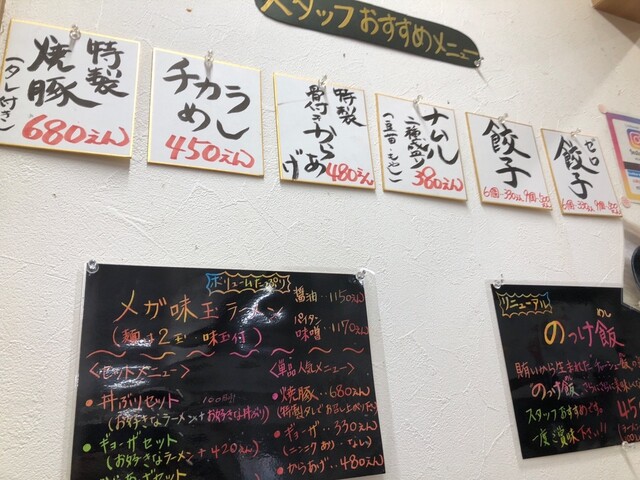 スタッフおすすめメニュー
特製
焼豚
(タレ付き)
680えん
チカラ
めし
450えん
特製
骨付きからあげ
480えん
ナムル
二種盛り
(豆苗・もやし)
380えん
餃子
6個・330えん 9個・500
ゼロ
餃子
6個・330えん 9個・500
ボリュームたっぷり
メガ味玉ラーメン
(麺1.2玉 味玉付)
醤油・・1150えん
パイタン
味噌・・1170えん
<セットメニュー>
丼ぶりセット
(お好きなラーメン+お好きな丼ぶり)
ギョーザセット
(お好きなラーメン+420えん)
<単品人気メニュー>
焼豚・・680えん
(特製タレでお召し上がりください)
ギョーザ・・330えん
(ニンニクあり・なし)
からあげ・・480えん
リニューアル
のっけ飯
めし
賄いから生まれた
のっけ飯
スタッフおすすめです。
一度ご賞味下さい!!